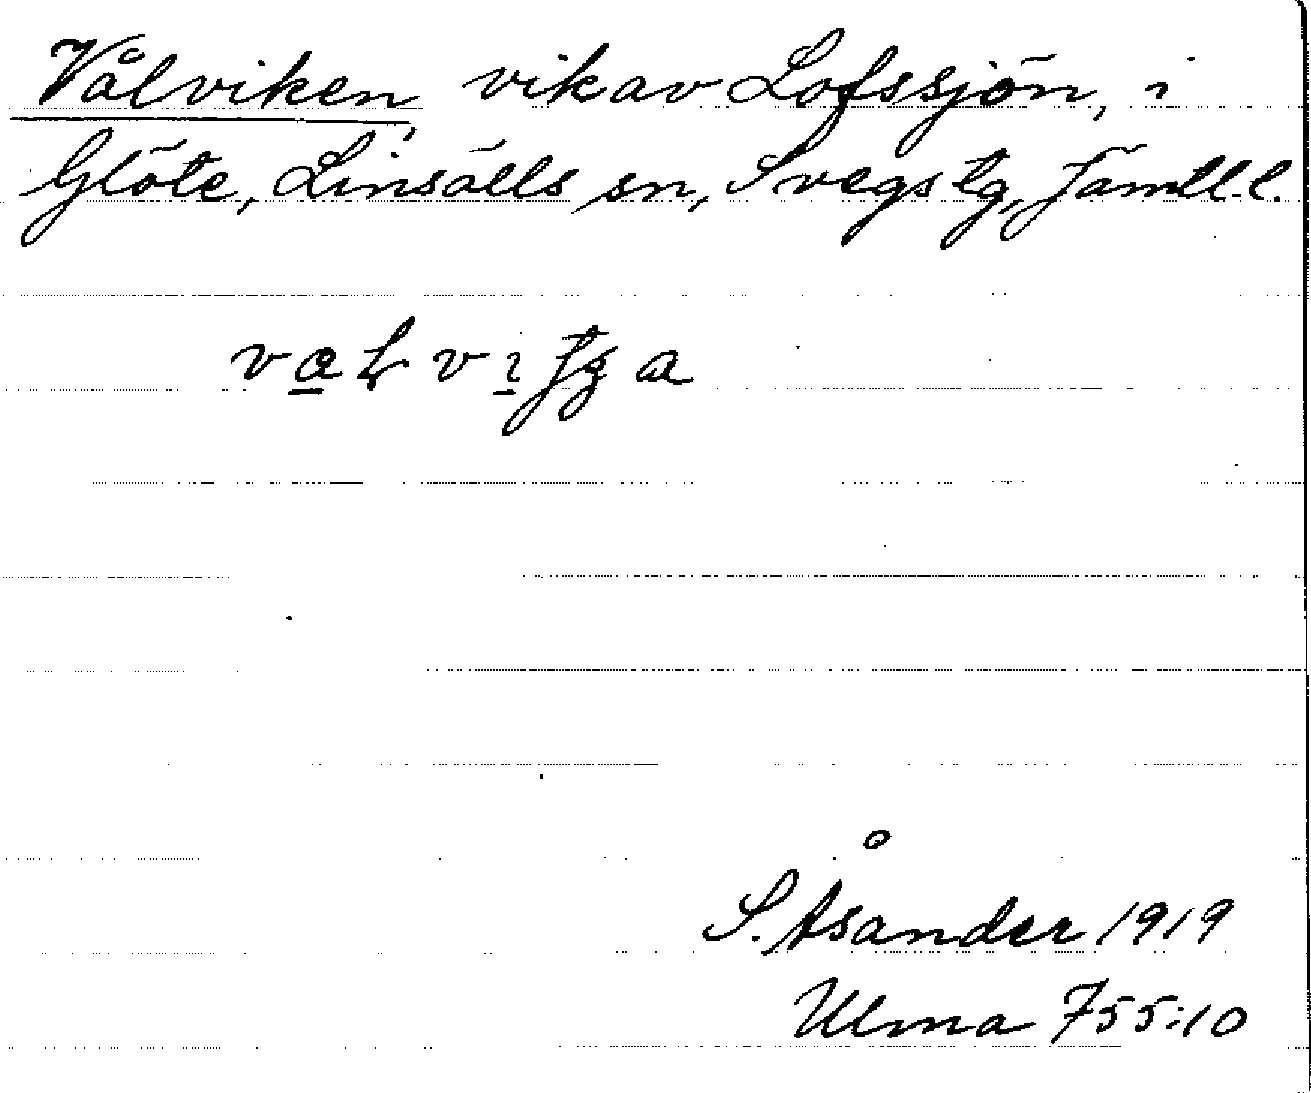 Vålviken, vik av Lofssjön, i
Glöte, Linsälls sn, Svegs tg, Jämtl. l.
S. Åsander 1919
Ulma 755:10